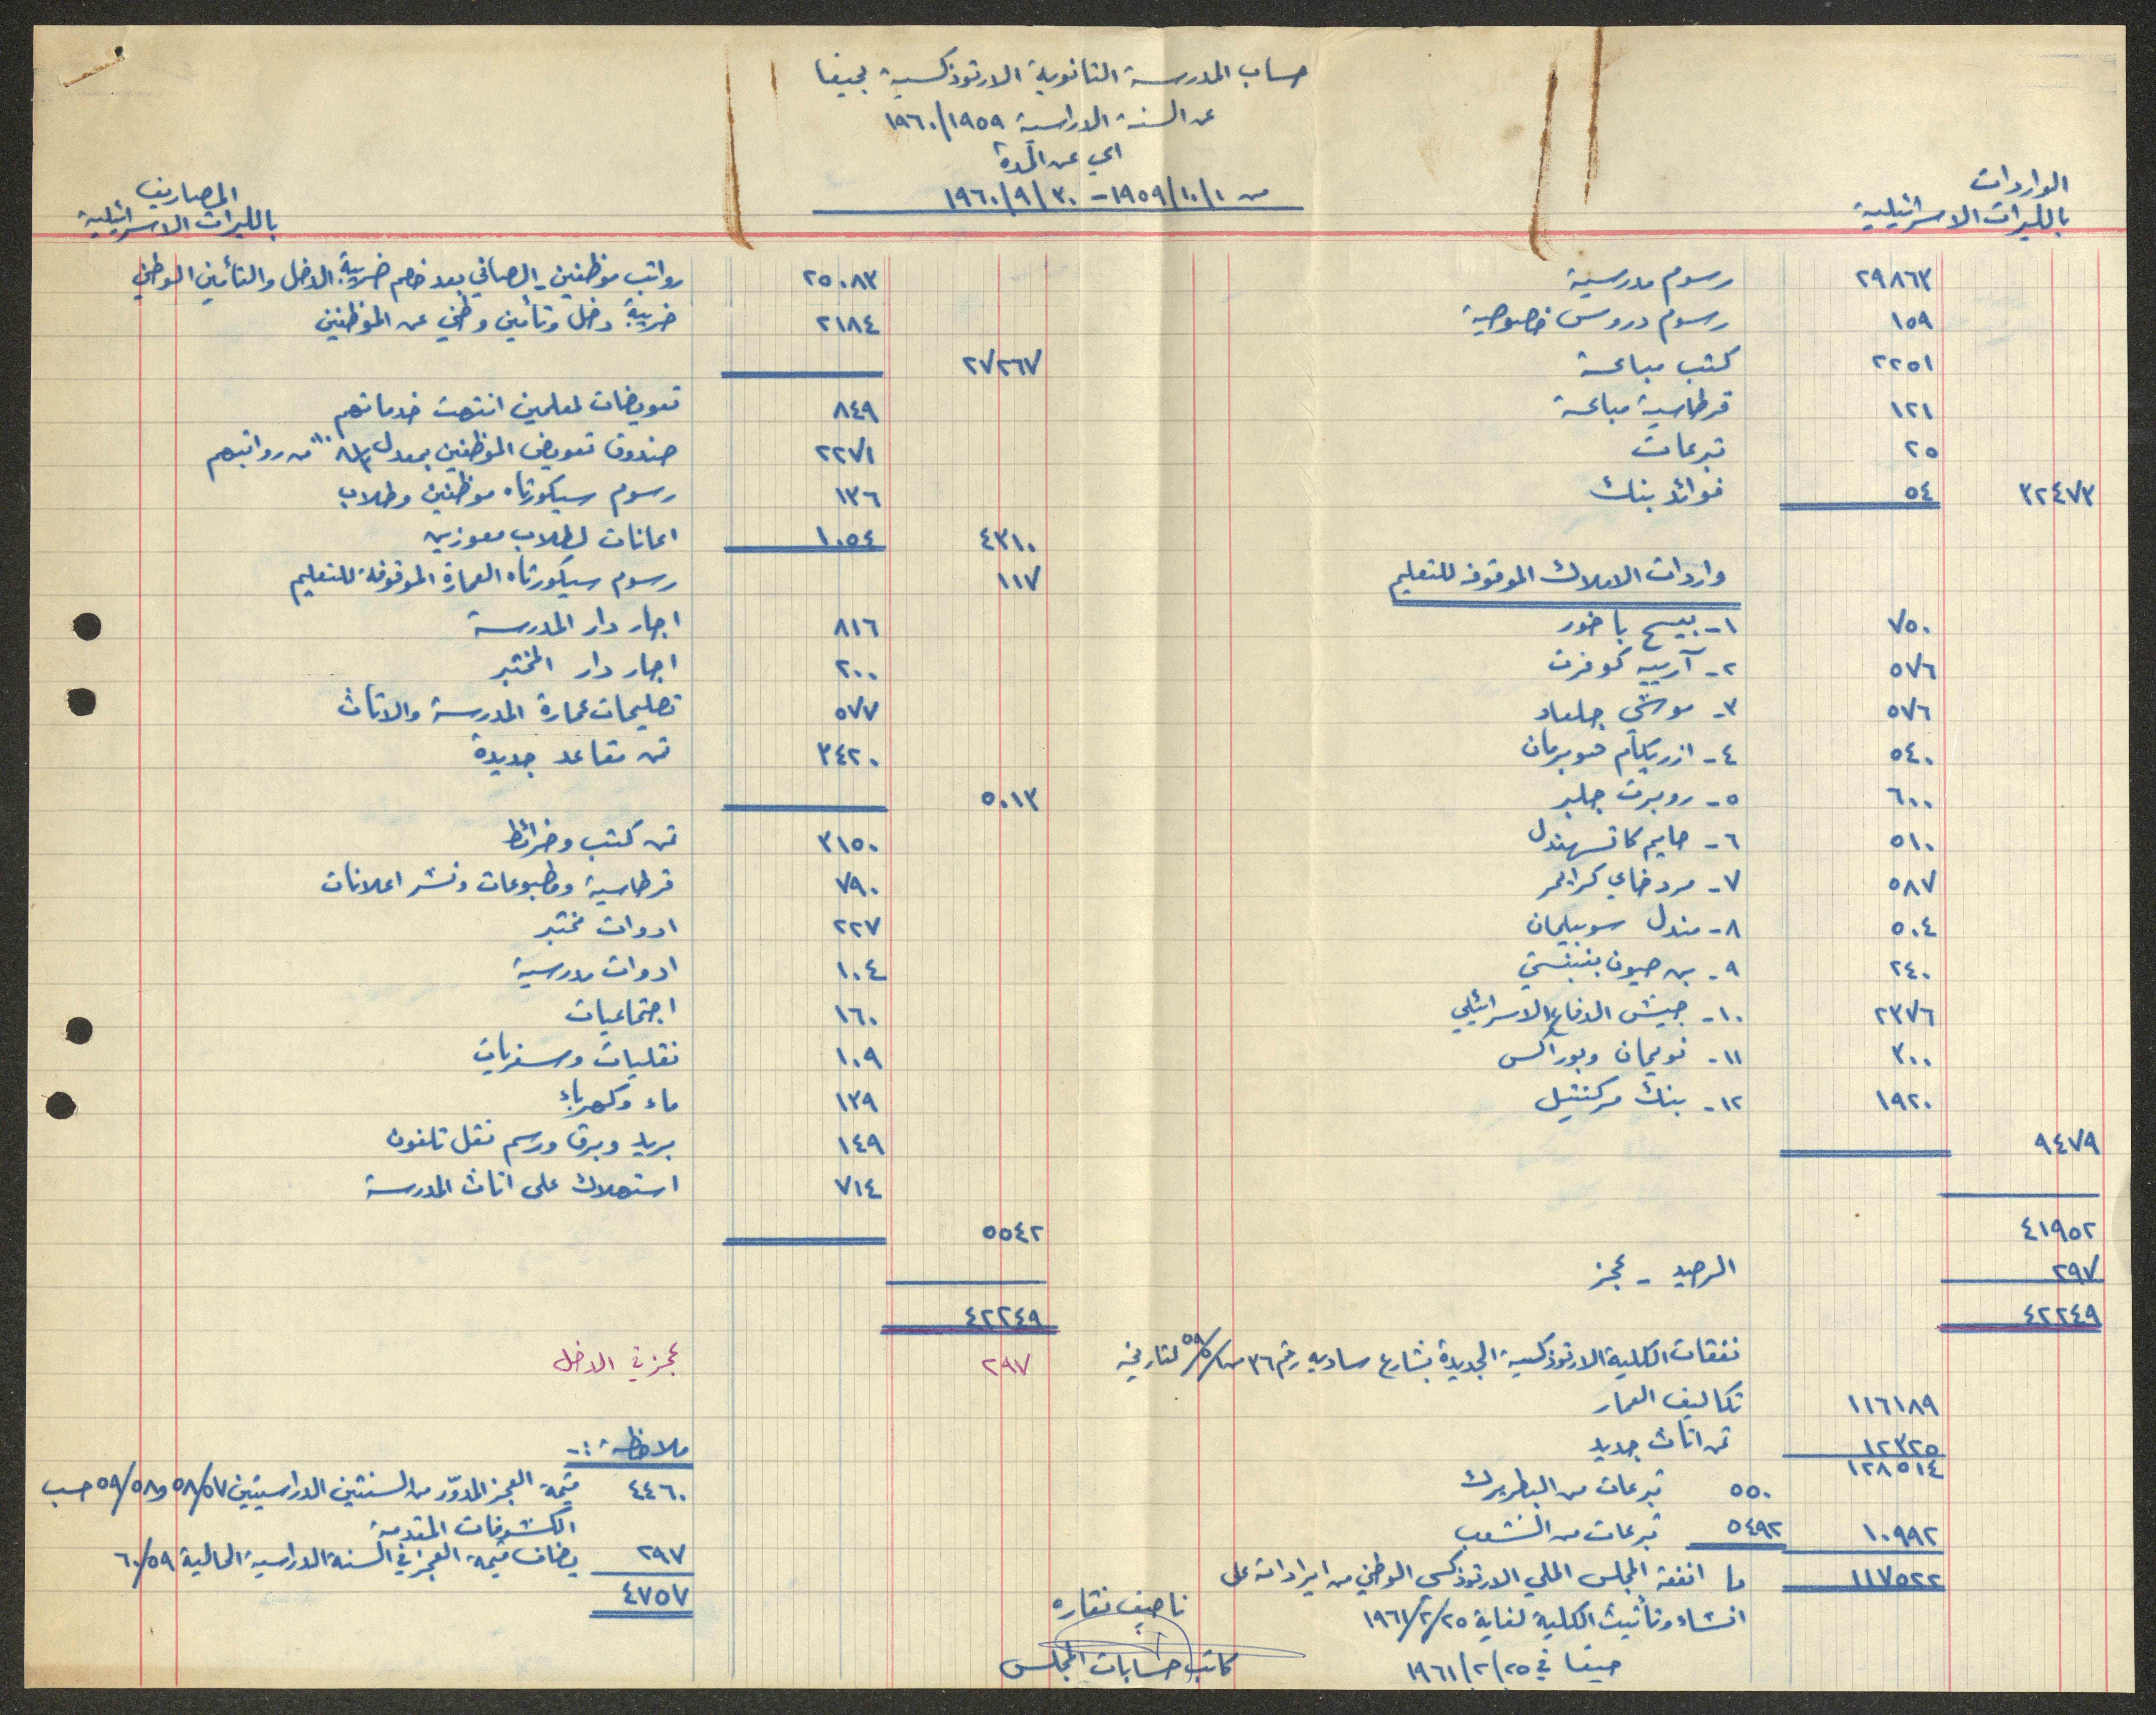 حساب المدرسة الثانوية الارثوذكسية بحيفا
عن السنة الدراسية ١٩٥٩/١٩٦٠
اي عن المدة
من ١/١٠/١٩٥٩ - ٣٠/٩/١٩٦٠
الواردات
بالليرات الاسرائيلية
٢٩٨٦٣ رسوم مدرسية
١٥٩ رسوم دروس خصوصية
٢٢٥١ كتب مباعة
١٢١ قرطاسية مباعة
٢٥ تبرعات
٣٢٤٧٣ ٥٤ فوائد بنك
واردات الاملاك الموقوفه للتعليم
٧٥٠ ١- بيسح باخور
٥٧٦ ٢- آرييه كوفرت
٥٧٦ ٣- موشي جلعاد
٥٤٠ ٤- ازريكام هوبرمان
٦٠٠ ٥- روبرت جلبر
٥١٠ ٦- حايم كاتسهندل
٥٨٧ ٧- مردخاي كرايمر
٥٠٤ ٨- مندل سوبيلمان
٢٤٠ ٩- بن صيون بنبنستي
٢٣٧٦ ١٠- جيش الدفاع الاسرائيلي
٣٠٠ ١١- نويمان وبوراكس
١٩٢٠ ١٢- بنك مركنتيل
٩٤٧٩
٤١٩٥٢
٢٩٧ الرصيد - عجز
٤٢٢٤٩
نفقات الكلية الارثوذكسية الجديدة بشارع ساديه رقم ٣٦ من لتاريخه
١١٦١٨٩ تكاليف العمار
١٢٣٢٥ ثمن اثاث جديد
١٢٨٥١٤
٥٥٠٠ تبرعات من البطريرك
١٠٩٩٢ ٥٤٩٢ تبرعات من الشعب
١١٧٥٢٢ ما انفقه المجلس الملي الارثوذكسي الوطني من ايراداته على
انشاء وتأثيث الكلية لغاية ٢٥/٢/١٩٦١
حيفا في ٢٥/٢/١٩٦١
ناصيف نقاره
كاتب حسابات المجلس
المصاريف
بالليرات الاسرائيلية
٢٥٠٨٣ رواتب موظفين - الصافي بعد خصم ضريبة الدخل والتأمين الوطني
٢١٨٤ ضريبة دخل وتأمين وطني عن الموظفين
٢٧٢٦٧
٨٤٩ تعويضات لمعلمين انتهت خدماتهم
٢٢٧١ صندوق تعويض الموظفين بمعدل ٨ ١/٣ ٪ من رواتبهم
١٣٦ رسوم سيكورتاه موظفين وطلاب
٤٣١٠ ١٠٥٤ اعانات لطلاب معوزين
١١٧ رسوم سيكورتاه العمارة الموقوفة للتعليم
٨١٦ اجار دار المدرسة
٢٠٠ اجار دار المختبر
٥٧٧ تصليحات عمارة المدرسة والاثاث
٣٤٢٠ ثمن مقاعد جديدة
٥٠١٣
٣١٥٠ ثمن كتب وخرائط
٧٩٠ قرطاسية ومطبوعات ونشر اعلانات
٢٢٧ ادوات مختبر
١٠٤ ادوات مدرسية
١٦٠ اجتماعيات
١٠٩ نقليات وسفريات
١٣٩ ماء وكهرباء
١٤٩ بريد وبرق ورسم نقل تلفون
٧١٤ استهلاك على اثاث المدرسة
٥٥٤٢
٤٢٢٤٩
٢٩٧ عجز في الدخل
ملاحظة :-
٤٤٦٠ قيمة العجز المدوّر من السنتين الدراسيتين ٥٨/٥٧ و ٥٩/٥٨ حسب
الكشوفات المقدمة
٢٩٧ يضاف قيمة العجز في السنة الدراسية الحالية ٦٠/٥٩
٤٧٥٧